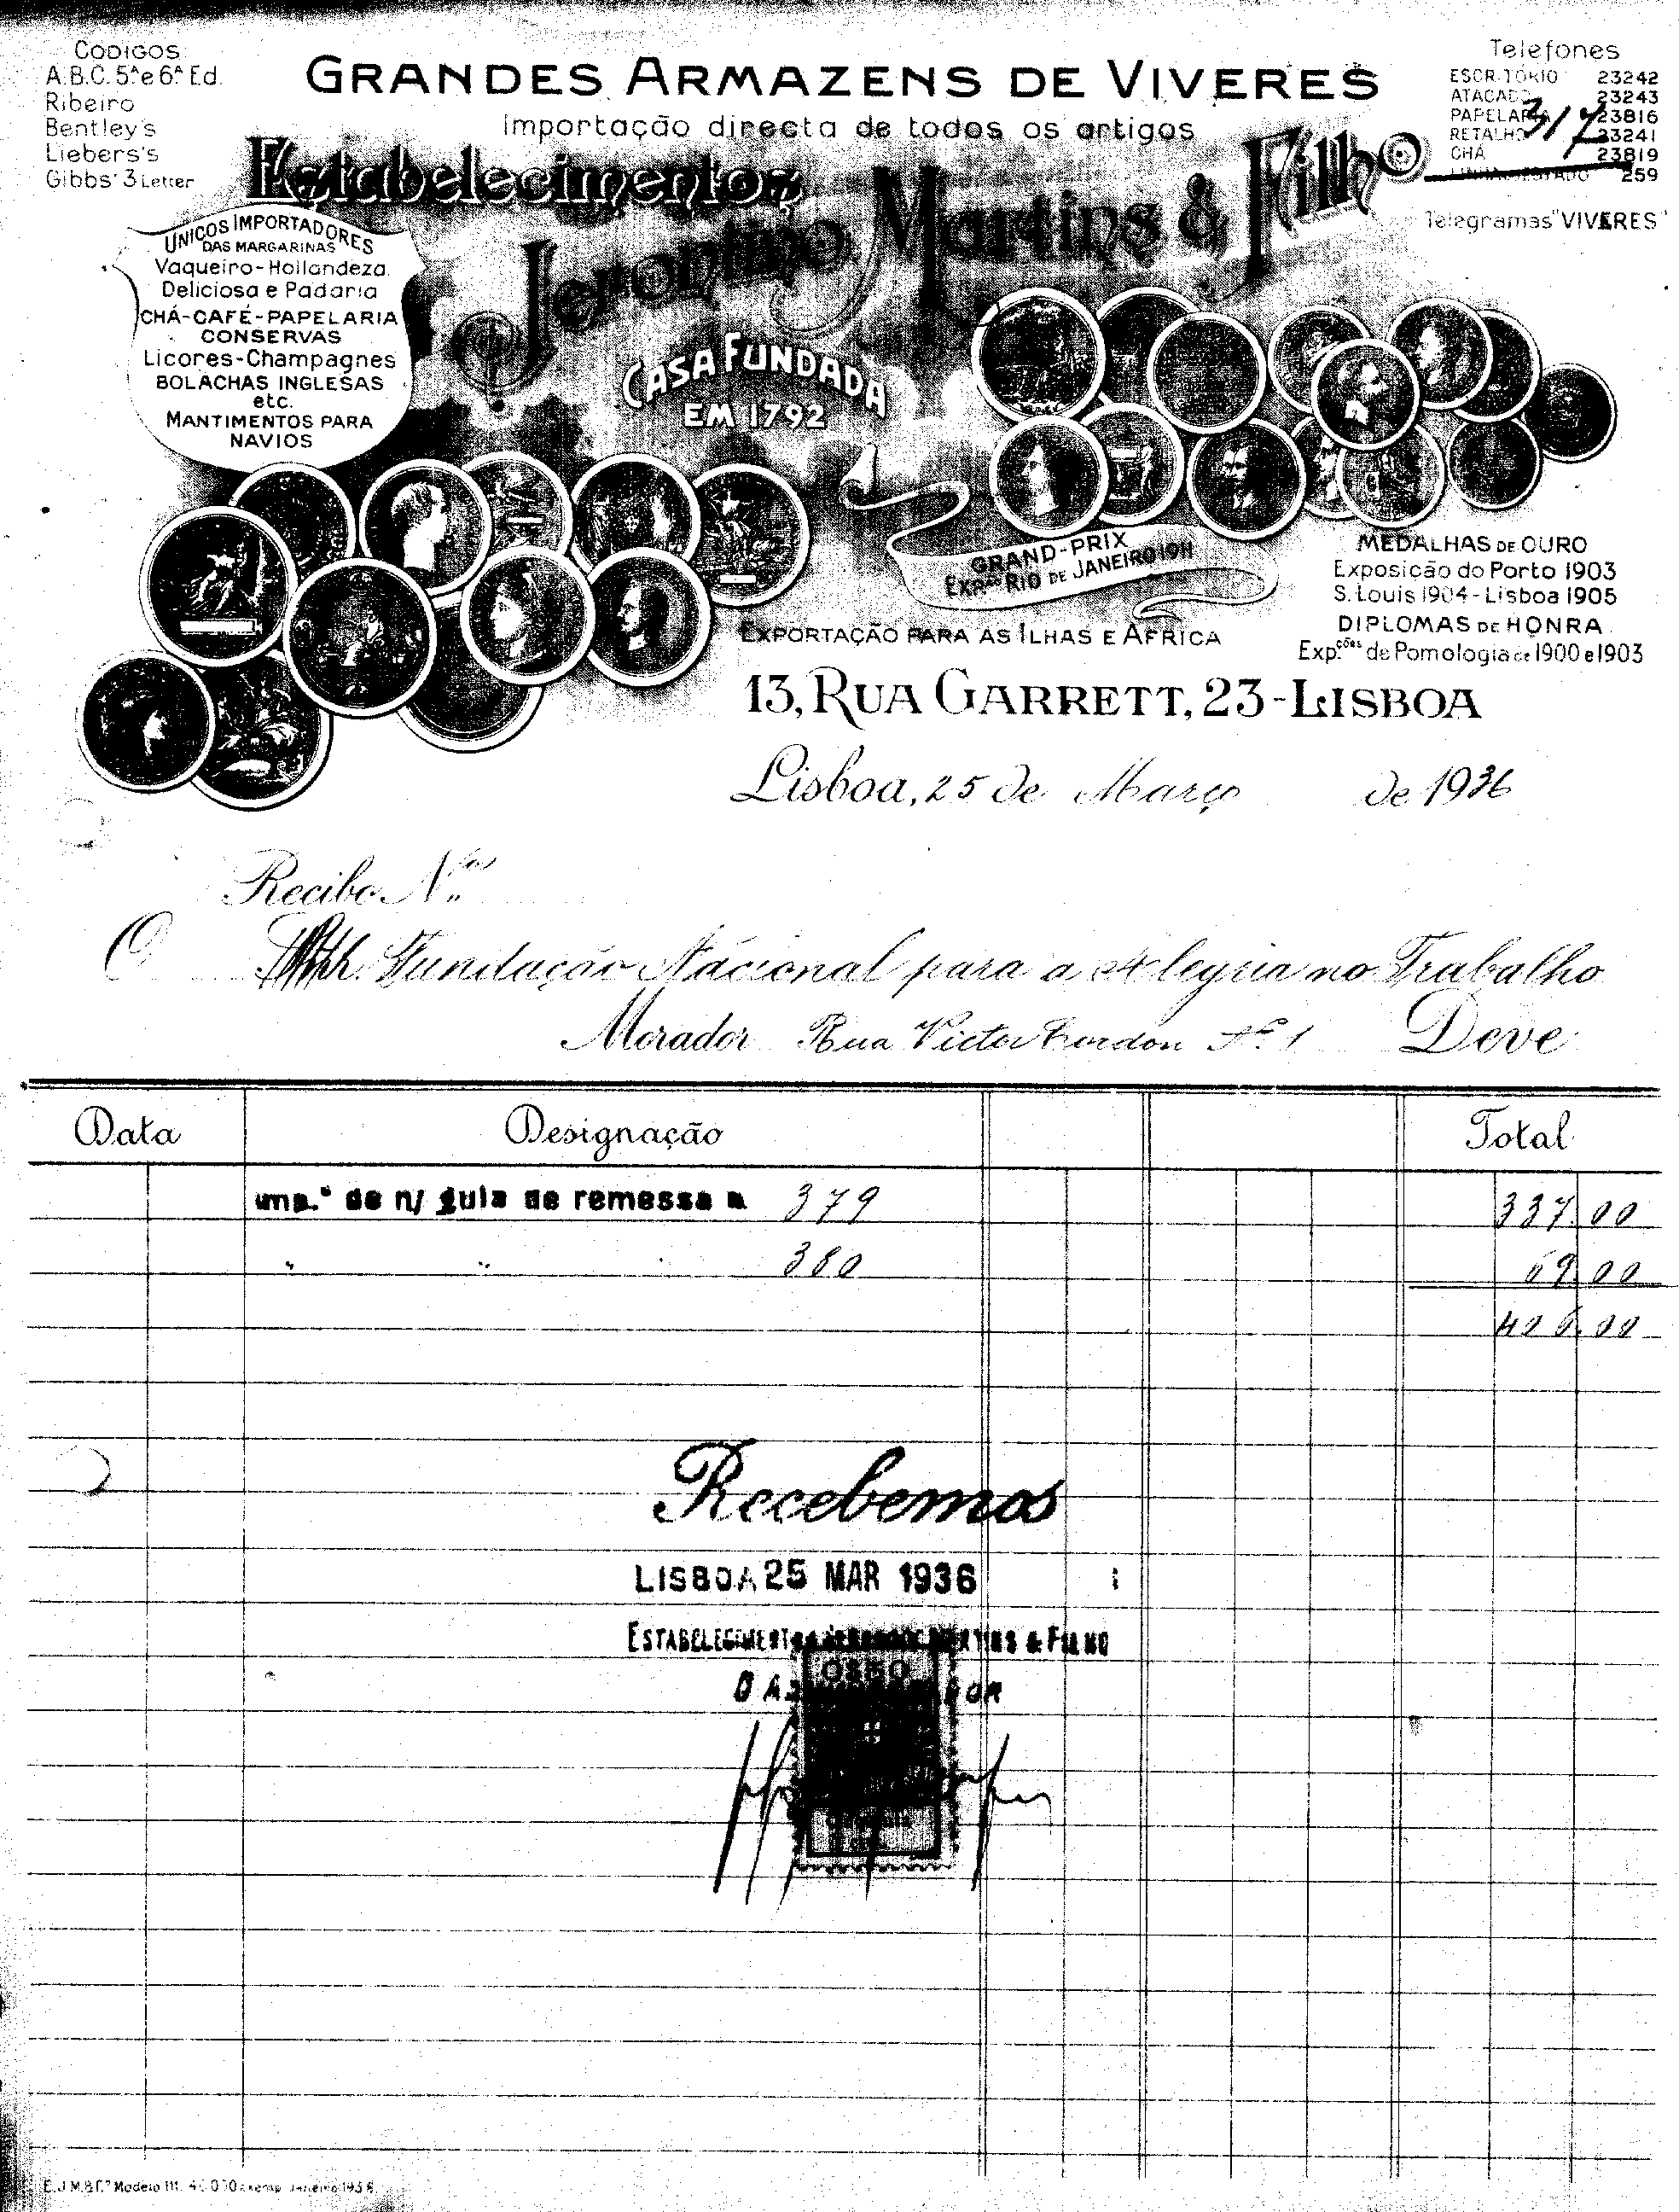 CODIGOS
A.B.C. 5ª e 6ª Ed.
Ribeiro
Bentley's
Liebers's
Gibbs' 3 Letter
GRANDES ARMAZENS DE VIVERES
Importação directa de todos os artigos
Telefones
ESCRITÓRIO 23242
ATACADO 23243
PAPELARIA 23816
RETALHO 23241
CHÁ 23819
259
317
Telegramas "VIVERES"
Estabelecimentos
Jeronimo Martins & Filho
CASA FUNDADA
EM 1792
UNICOS IMPORTADORES
DAS MARGARINAS
Vaqueiro-Hollandeza
Deliciosa e Padaria
CHÁ-CAFÉ-PAPELARIA
CONSERVAS
Licores-Champagnes
BOLACHAS INGLESAS
etc.
MANTIMENTOS PARA
NAVIOS
GRAND-PRIX
EXPção RIO DE JANEIRO 1911
MEDALHAS DE OURO
Exposição do Porto 1903
S. Louis 1904-Lisboa 1905
DIPLOMAS DE HONRA
Exp.ções de Pomologia de 1900 e 1903
EXPORTAÇÃO PARA AS ILHAS E AFRICA
13, RUA GARRETT, 23-LISBOA
Lisboa, 25 de Março de 1936
Recibo N.º
O Fundação Nacional para a Alegria no Trabalho
Morador Rua Victor Gordon Nº 1 Deve
Data Designação Total
de n/ guia de remessa 379 337.00
" " 380 69.00
406.00
Recebemos
LISBOA 25 MAR 1936
ESTABELECIMENTOS JERONIMO MARTINS & FILHO
E.J.M.& F.º Modelo 111. Janeiro 1936